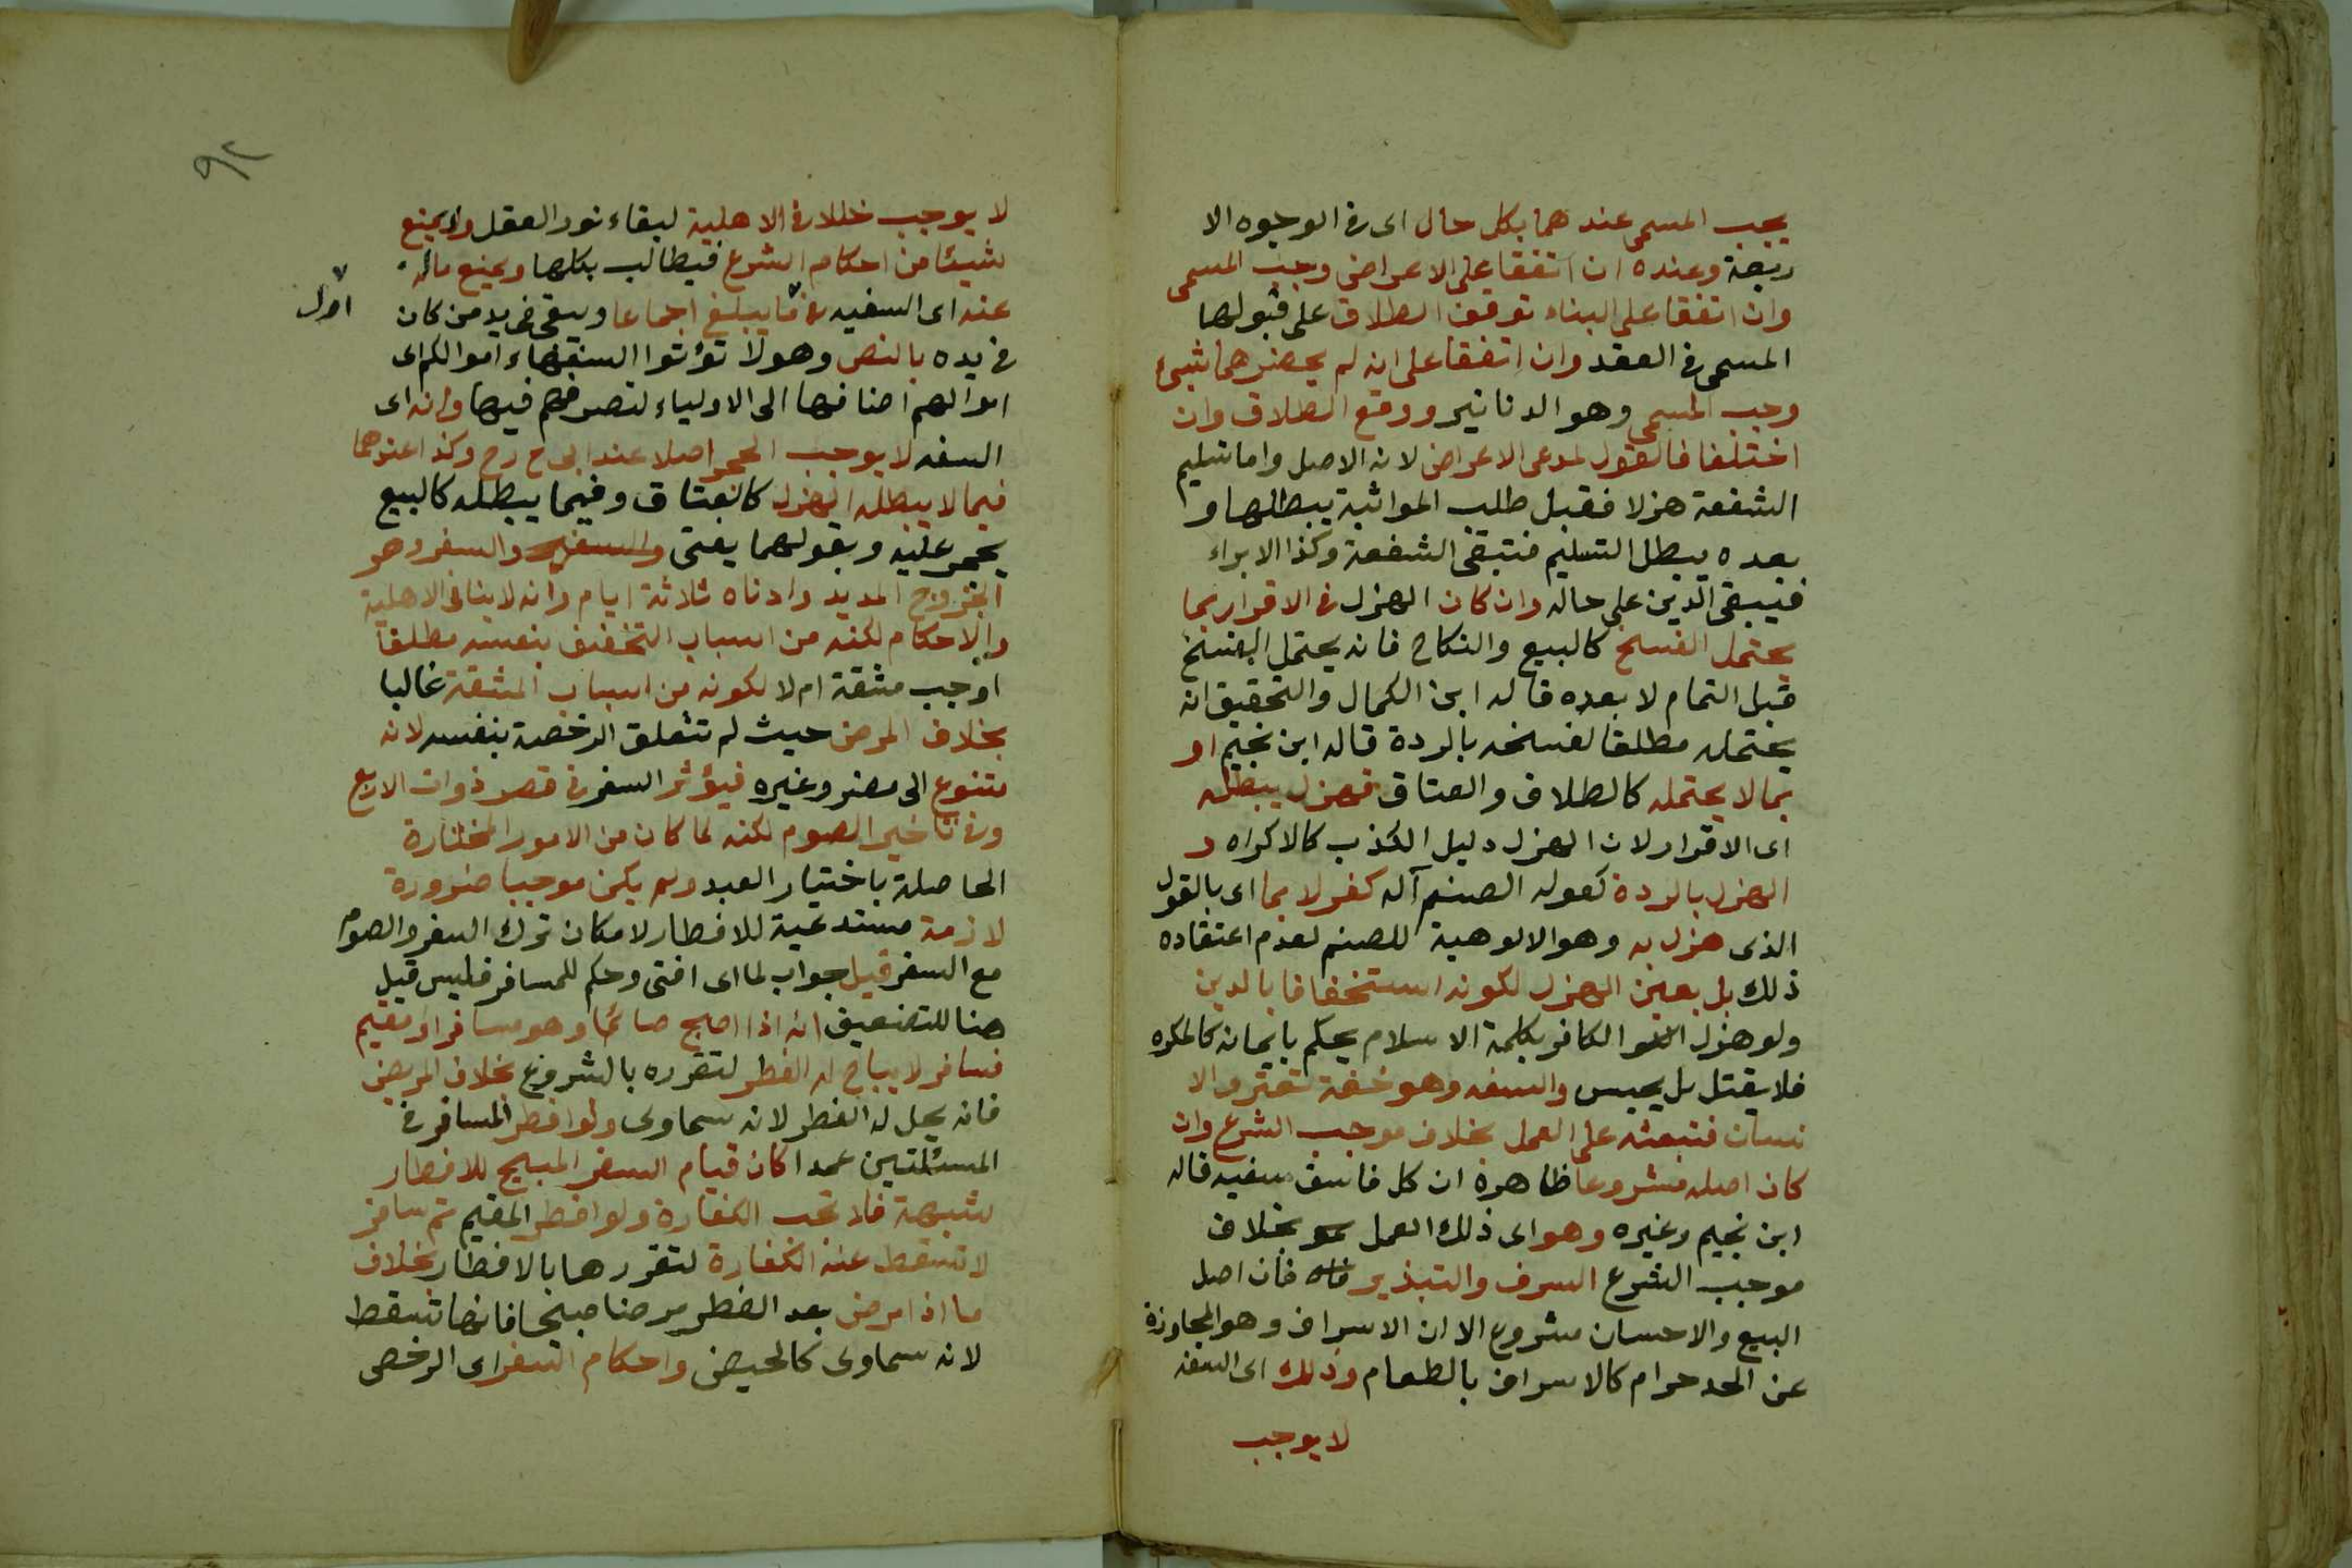 يجب المسمى عندهما بكل حال اى فى الوجوه الا
ربعة وعنده ان اتفقا على الاعراض وجب المسمى
وان اتفقا على البناء توقف الطلاق على قبولها
المسمى فى العقد وان اتفقا على انه لم يحضرهما شيئ
وجب المسمى وهو الدنانير ووقع الطلاق وان
اختلفا فالقول لمدعى الاعراض لانه الاصل واما تسليم
الشفعة هزلا فقبل طلب المواثبة يبطلها و
بعده يبطل التسليم فتبقى الشفعة وكذا الابراء
فيبقى الدين على حاله وان كان الهزل فى الاقرار بما
يحتمل الفسخ كالبيع والنكاح فانه يحتمل الفسخ
قبل التمام لا بعده قاله ابن الكمال والتحقيق انه
يحتمله مطلقا لفسخه بالردة قاله ابن نجيم او
بما لا يحتمله كالطلاق والعتاق فهزل يبطله
اى الاقرار لان الهزل دليل الكذب كالاكراه و
الهزل بالردة كقوله الصنم آله كفر لا بما اى بالقول
الذى هزل به وهو الالوهية للصنم لعدم اعتقاده
ذلك بل بعين الهزل لكونه استخفافا بالدين
ولو هزل الكافر بكلمة الاسلام يحكم بايمانه كالمكره
فلا يقتل بل يحبس والسفه وهو خفة تعترى الا
نسان فتبعثه على العمل بخلاف موجب الشرع وان
كان اصله مشروعا ظاهره ان كل فاسق سفيه قاله
ابن نجيم وغيره وهو اى ذلك العمل بخلاف
موجب الشرع السرف والتبذير فان اصل
البيع والاحسان مشروع الا ان الاسراف وهو المجاوزة
عن الحد حرام كالاسراف بالطعام وذلك اى السفه
لا يوجب
٩٢
لا يوجب خللا فى الاهلية لبقاء نور العقل ولا يمنع
شيئا من احكام الشرع فيطالب بكلها ويمنع ماله
عنه اى السفيه فى ما يبلغ اجماعا ويبقى فى يد من كان
اول
فى يده بالنص وهو لا تؤتوا السفهاء اموالكم اى
اموالهم اضافها الى الاولياء لتصرفهم فيها وانه اى
السفه لا يوجب الحجر اصلا عند ابى ح رح وكذا عندهما
فيما لا يبطله الهزل كالعتاق وفيما يبطله كالبيع
يحجر عليه وبقولهما يفتى والسفر وهو
الخروج المديد وادناه ثلاثة ايام وانه لا ينافى الاهلية
والاحكام لكنه من اسباب التخفيف بنفسه مطلقا
اوجب مشقة ام لا لكونه من اسباب المشقة غالبا
بخلاف المرض حيث لم تتعلق الرخصة بنفسه لانه
متنوع الى مضر وغيره فيؤثر السفر فى قصر ذوات الاربع
وفى تاخير الصوم لكنه لما كان من الامور المختارة
الحاصلة باختيار العبد ولم يكن موجبا ضرورة
لازمة مستدعية للافطار لامكان ترك السفر والصوم
مع السفر قيل جواب لما اى افتى وحكم للمسافر فليس قيل
هنا للتضعيف انه اذا اصبح صائما وهو مسافر او مقيم
فسافر لا يباح له الفطر لتقرره بالشروع بخلاف المريض
فانه يحل له الفطر لانه سماوى ولو افطر المسافر فى
المسئلتين عمدا كان قيام السفر المبيح للافطار
شبهة فلا تجب الكفارة ولو افطر المقيم ثم سافر
لا تسقط عنه الكفارة لتقررها بالافطار بخلاف
ما اذا مرض بعد الفطر مرضا مبيحا فانها تسقط
لانه سماوى كالحيض واحكام السفر اى الرخص